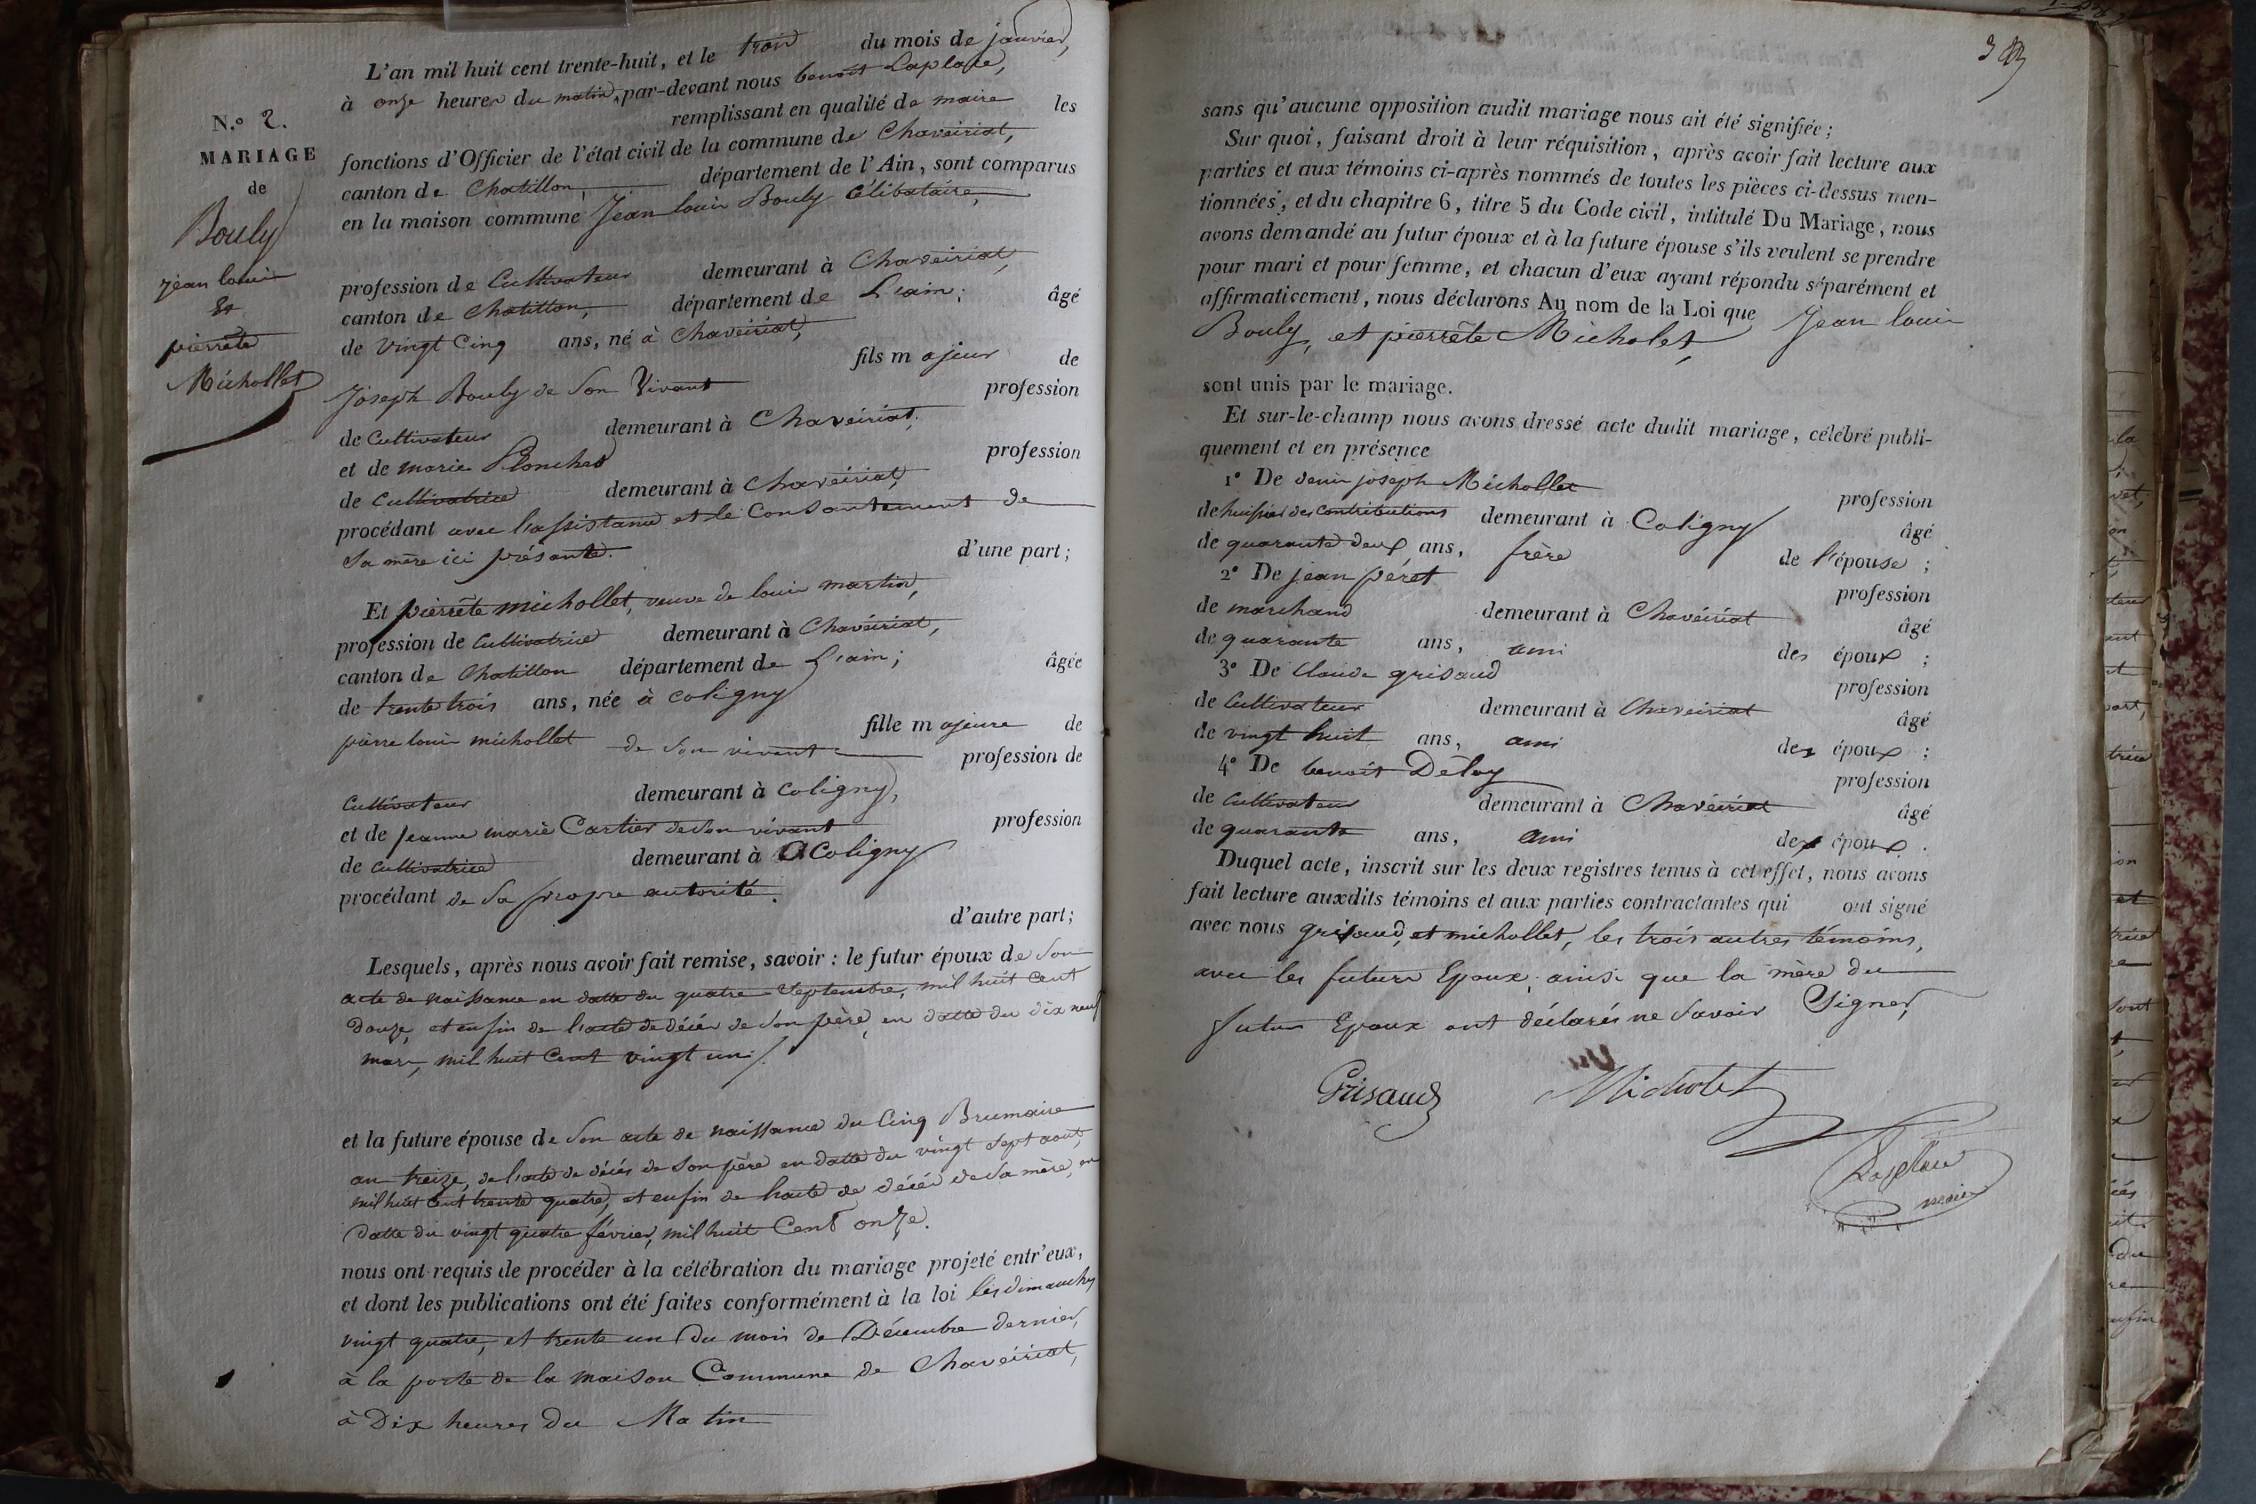 L'an mil huit cent trente-huit, et le trois du mois de janvier,
à onze heures du matin, par-devant nous benoît Laplace,
remplissant en qualité de maire les
fonctions d'Officier de l'état civil de la commune de Chaveiriat,
canton de Chatillon, département de l'Ain, sont comparus
en la maison commune Jean louis Bouly Célibataire,
N.º 2.
MARIAGE
de
Bouly
jean louis
&
pierrète
Michollet
profession de Cultivateur demeurant à Chaveiriat,
canton de Chatillon, département de L'ain; âgé
de vingt Cinq ans, né à Chaveiriat,
fils majeur de
Joseph Bouly de Son Vivant profession
de Cultivateur demeurant à Chaveiriat,
et de marie Planchet profession
de Cultivatrice demeurant à Chaveiriat,
procédant avec l'assistance et le Consantement de
Sa mère ici présante. d'une part;
Et pierrète michollet, veuve de louis martin,
profession de Cultivatrice demeurant à Chavéiriat,
canton de Chatillon département de L'ain; âgée
de trente trois ans, née à coligny
fille majeure de
pierre louis michollet de Son vivant profession de
Cultivateur demeurant à Coligny,
et de Jeanne marie Cartier de Son vivant profession
de Cultivatrice demeurant à Coligny
procédant de Sa propre autorité.
d'autre part;
Lesquels, après nous avoir fait remise, savoir : le futur époux de Son
acte de naissance en datte du quatre Septembre, mil huit cent
douze, et enfin de l'acte de décés de Son père, en datte du dix neuf
mars, mil huit Cent vingt un.
et la future épouse de Son acte de naissance du Cinq Brumaire
an treize, de l'acte de décés de Son père en datte du vingt Sept aout,
mil huit Cent trente quatre, et enfin de l'acte de décés de Sa mère, en
datte du vingt quatre février, mil huit Cent onze.
nous ont requis de procéder à la célébration du mariage projeté entr'eux,
et dont les publications ont été faites conformément à la loi les dimanches
vingt quatre, et trente un du mois de Décembre dernier,
à la porte de la maison Commune de Chavéiriat,
à Dix heures du Matin
sans qu'aucune opposition audit mariage nous ait été signifiée;
Sur quoi, faisant droit à leur réquisition, après avoir fait lecture aux
parties et aux témoins ci-après nommés de toutes les pièces ci-dessus men-
tionnées, et du chapitre 6, titre 5 du Code civil, intitulé Du Mariage, nous
avons demandé au futur époux et à la future épouse s'ils veulent se prendre
pour mari et pour femme, et chacun d'eux ayant répondu séparément et
affirmativement, nous déclarons Au nom de la Loi que Jean louis
Bouly, et pierrète Micholet,
sont unis par le mariage.
Et sur-le-champ nous avons dressé acte dudit mariage, célébré publi-
quement et en présence
1º De joseph Michollet profession
de huissier des contributions demeurant à Coligny âgé
de quarante deux ans, frère de l'épouse;
2º De jean péret profession
de marchand demeurant à Chavéiriat âgé
de quarante ans, ami des époux;
3º De claude grisaud profession
de Cultivateur demeurant à Chaveiriat âgé
de vingt huit ans, ami des époux;
4º De benoit Déloy profession
de Cultivateur demeurant à Chavéiriat âgé
de quarante ans, ami des époux.
Duquel acte, inscrit sur les deux registres tenus à cet effet, nous avons
fait lecture auxdits témoins et aux parties contractantes qui ont signé
avec nous grisaud, et michollet, les trois autres témoins,
avec les futurs Epoux, ainsi que la mère du
futur Epoux ont déclarés ne Savoir Signer,
Grisaud Micholet
Laplace
maire